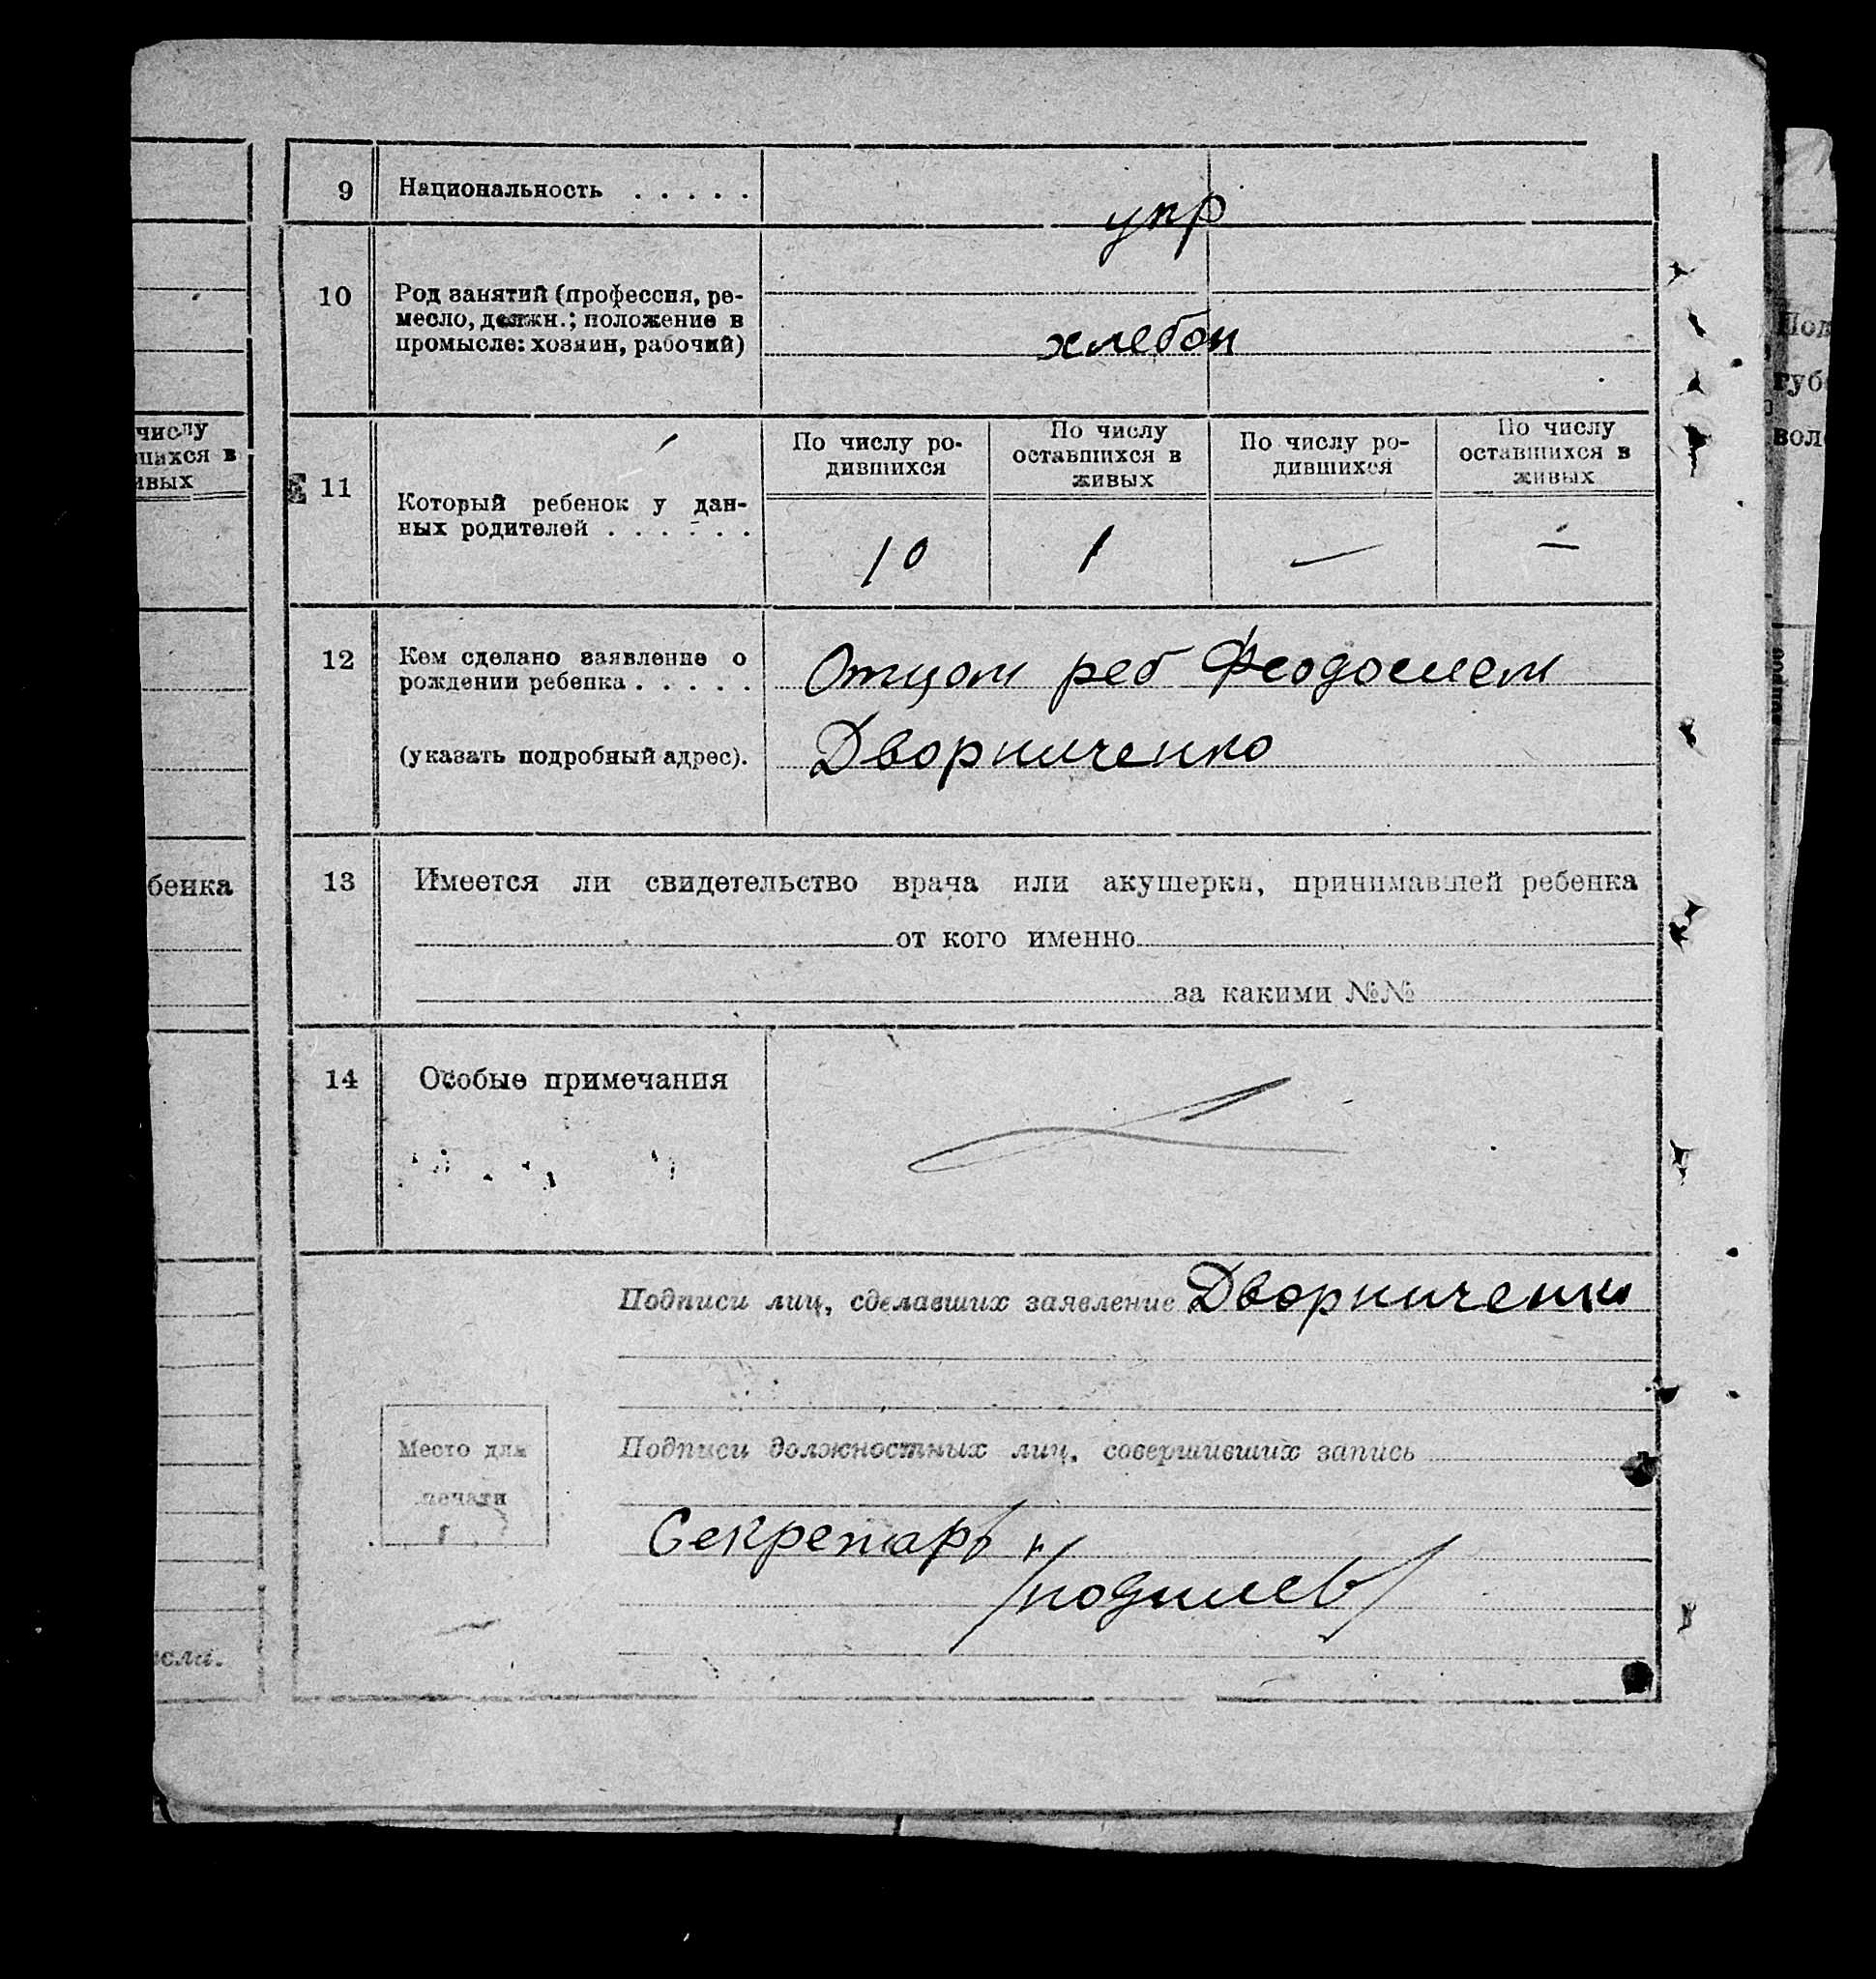 9 Национальность . . . . .
упр
10 Род занятий (профессия, ре-
месло, должн.; положение в
промысле: хозяин, рабочий)
хлебоп
числу
шихся в
ивых
11 Который ребенок у дан-
ных родителей . . . . . .
По числу ро-
дившихся
По числу
оставшихся в
живых
По числу ро-
дившихся
По числу
оставшихся в
живых
10 1 — —
12 Кем сделано заявление о
рождении ребенка . . . . .
(указать подробный адрес).
Отцом реб Феодосием
Дворниченко
бенка
13 Имеется ли свидетельство врача или акушерки, принимавшей ребенка
от кого именно
за какими №№
14 Особые примечания
Подписи лиц, сделавших заявление Дворниченко
Место для
печати
Подписи должностных лиц, совершивших запись
Секретарь
если.
Пол
губ
вол